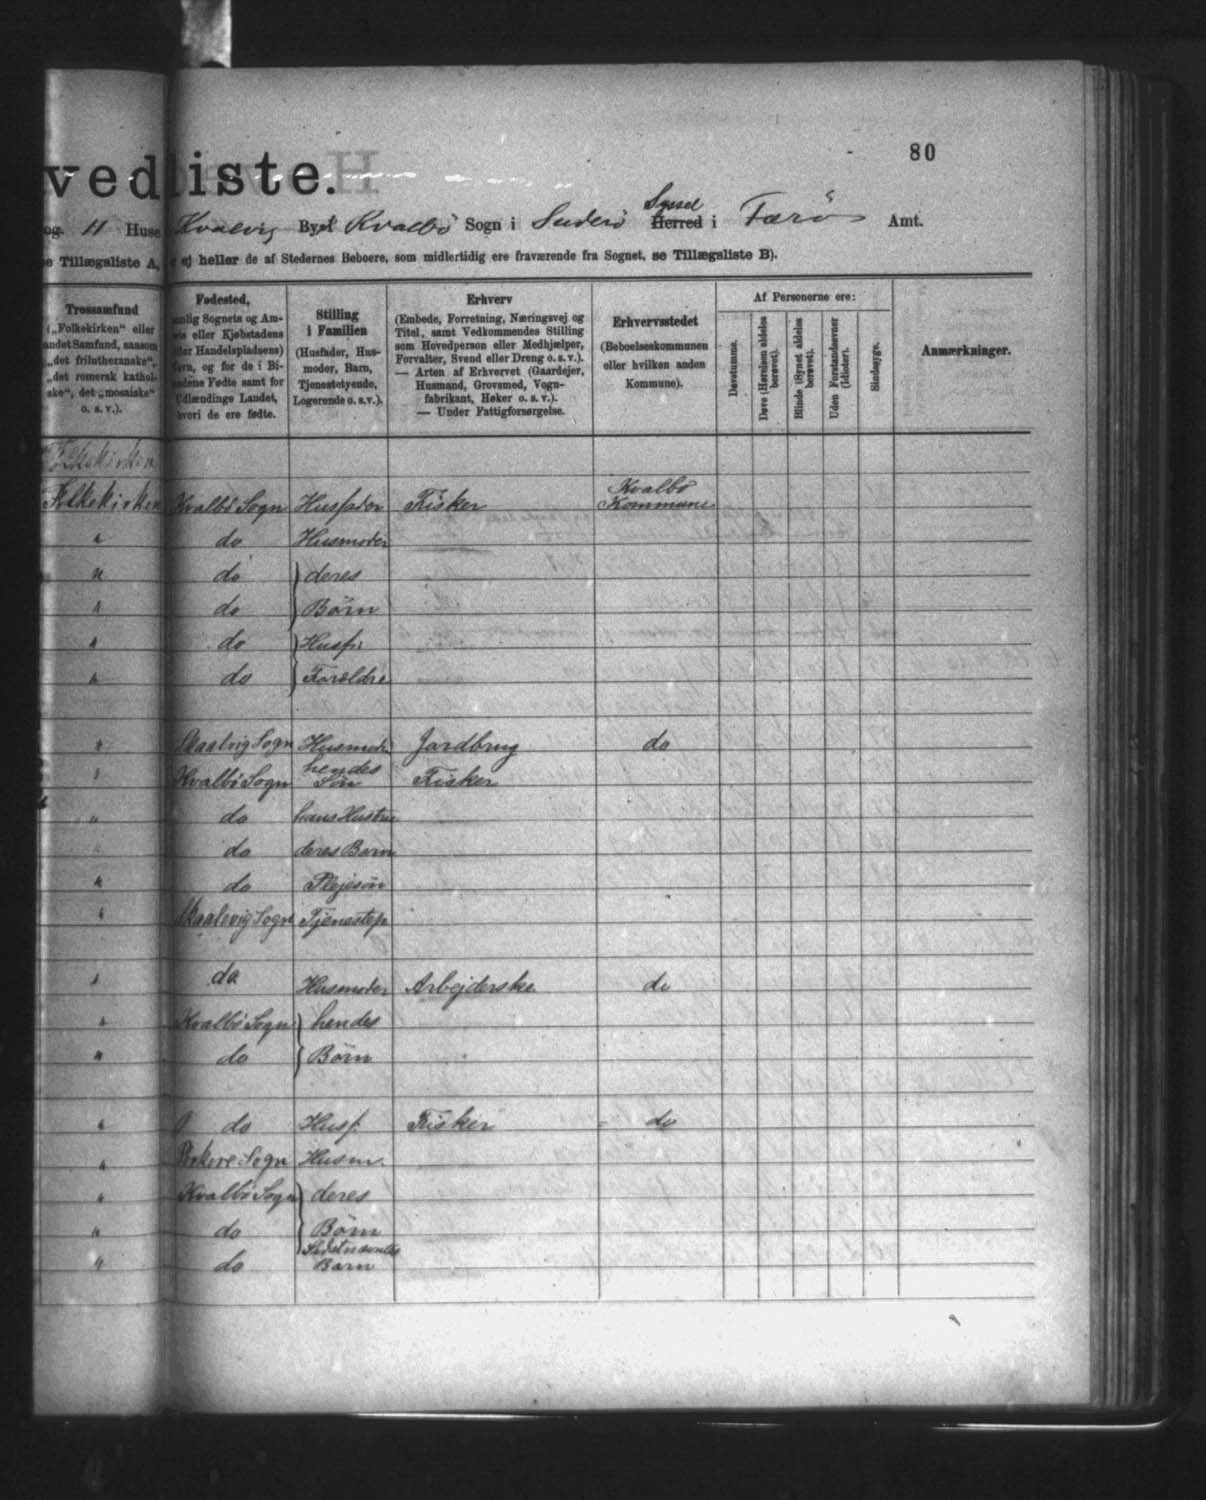 80
vedliste.
og 11 Huse Kvalvig By, Kvalbö Sogn i Suderö Syssel Herred i Færö Amt.
se Tillægsliste A, ej heller de af Stedernes Beboere, som midlertidig ere fraværende fra Sognet, se Tillægsliste B).
Trossamfund
(„Folkekirken" eller
andet Samfund, saasom
„det frilutheranske",
„det romersk kathol-
ske", det „mosaiske"
o. s. v.).
Fødested,
nemlig Sognets og Am-
tets eller Kjøbstadens
eller Handelspladsens)
Navn, og for de i Bi-
landene Fødte samt for
Udlændinge Landet,
hvori de ere fødte.
Stilling
i Familien
(Husfader, Hus-
moder, Barn,
Tjenestetyende,
Logerende o. s. v.).
Erhverv
(Embede, Forretning, Næringsvej og
Titel, samt Vedkommendes Stilling
som Hovedperson eller Medhjælper,
Forvalter, Svend eller Dreng o. s. v.).
— Arten af Erhvervet (Gaardejer,
Husmand, Grovsmed, Vogn-
fabrikant, Høker o. s. v.).
— Under Fattigforsørgelse.
Erhvervsstedet
(Beboelseskommunen
eller hvilken anden
Kommune).
Af Personerne ere:
Døvstumme.
Døve (Hørelsen aldeles berøvet).
Blinde (Synet aldeles berøvet).
Uden Forstandsevner (Idioter).
Sindssyge.
Anmærkninger.
Folkekirken
Folkekirken Kvalbö Sogn Husfader Fisker Kvalbö Kommune
" do Husmoder
" do deres
" do Börn
" do Husf.
" do Forældre
" Skaalvig Sogn Husmoder Jordbrug do
" Kvalbö Sogn hendes Sön Fisker
" do hans Hustru
" do deres Barn
" do Plejesön
" Skaalevig Sogn Tjenestep
" do Husmoder Arbejderske do
" Kvalbö Sogn hendes
" do Börn
" do Husf. Fisker do
" Porkere Sogn Husm.
" Kvalbö Sogn deres
" do Börn
" do Sidstnævntes Barn